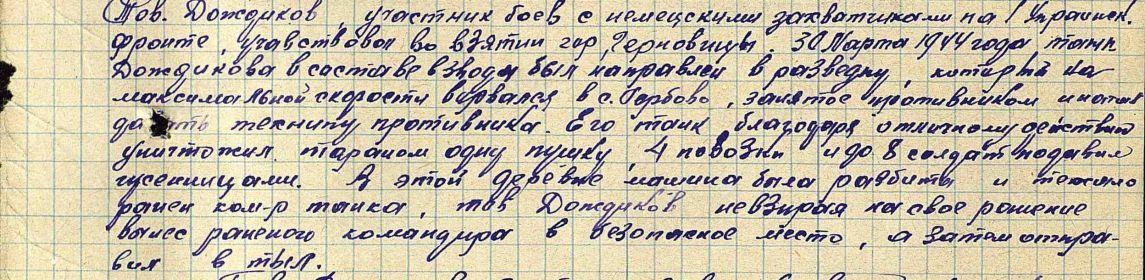 Тов. Дождиков, участник боев с немецскими захватчиками на 1 Украинск.
фронте, учавствовал во взятии гор Черновицы. 30 Марта 1944 года танк
Дождикова в составе взвода был направлен в разведку, который на
максимальной скорости ворвался в с. Горбово, занятое противником и начал
да ить технику противника. Его танк благодаря отличному действию
уничтожил тараном одну пушку, 4 повозки и до 8 солдат подавил
гусенницами. В этой деревне машина была разбита и тежило
ранен ком-р танка, тов Дождиков невзирая на свое ранение
вынес раненого командира в безопасное место, а затем отпра-
вил в тыл.